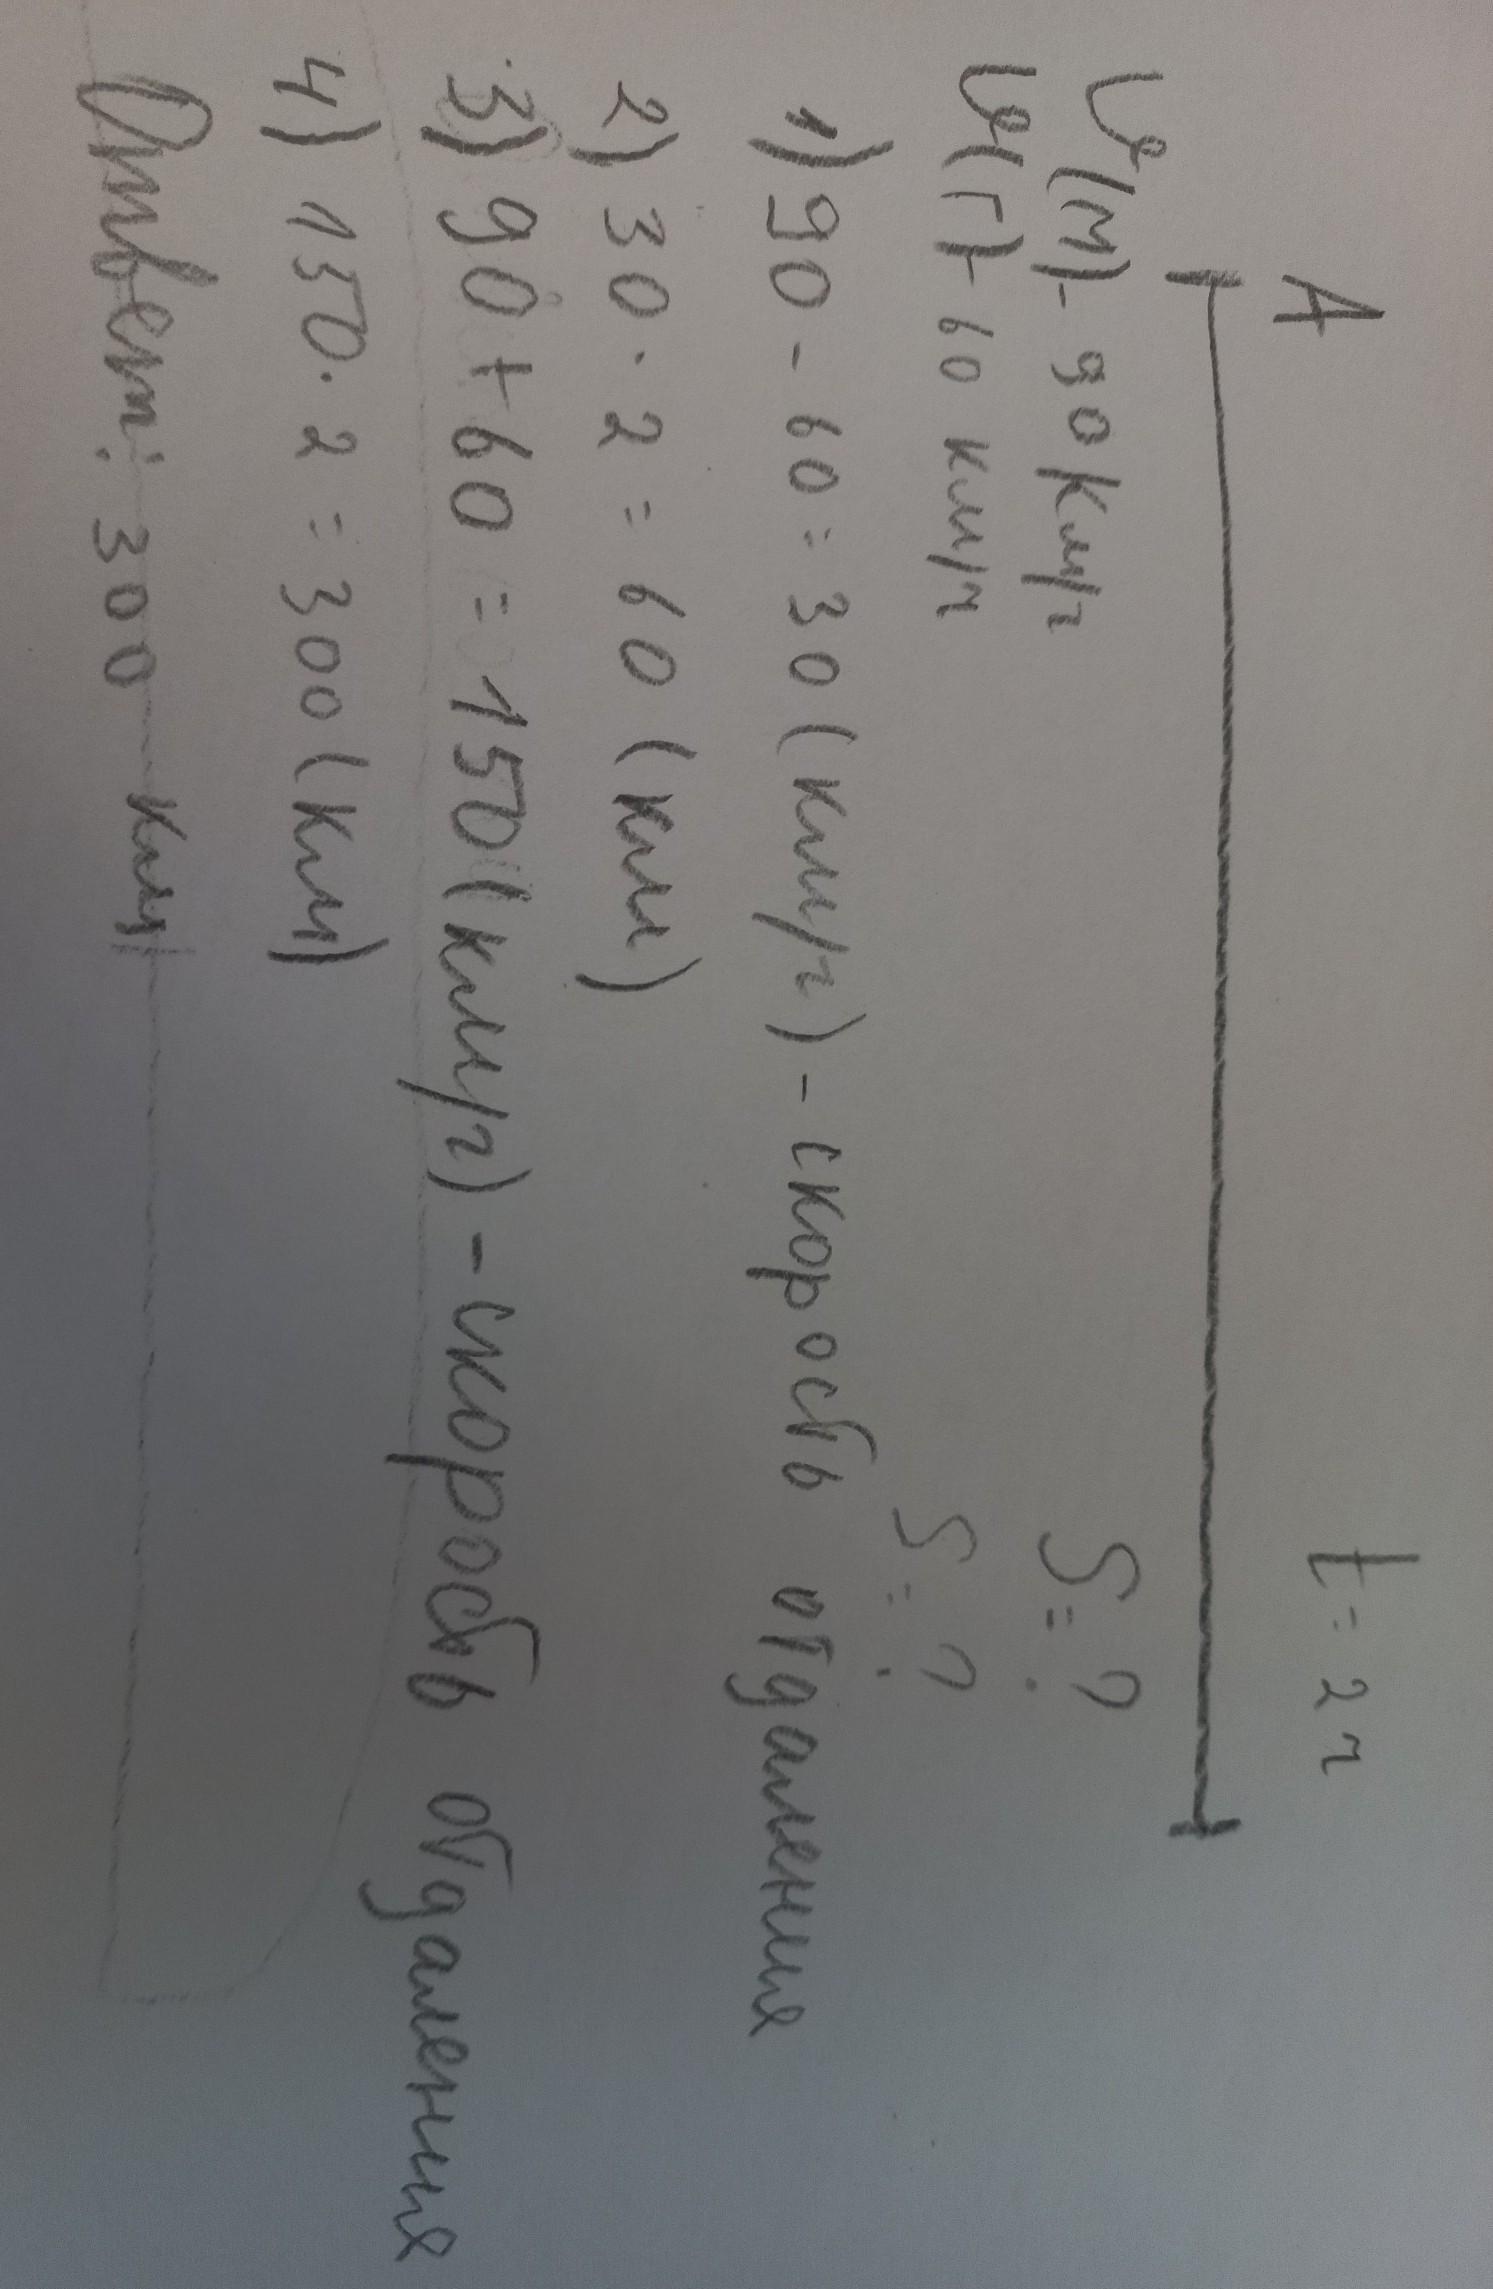 A t = 2 ч
V(м) - 90 км/ч S = ?
V(г) - 60 км/ч S = ?
1) 90 - 60 = 30 (км/ч) - скорость отдаления
2) 30 · 2 = 60 (км)
3) 90 + 60 = 150 (км/ч) - скорость отдаления
4) 150 · 2 = 300 (км)
Ответ: 300 км